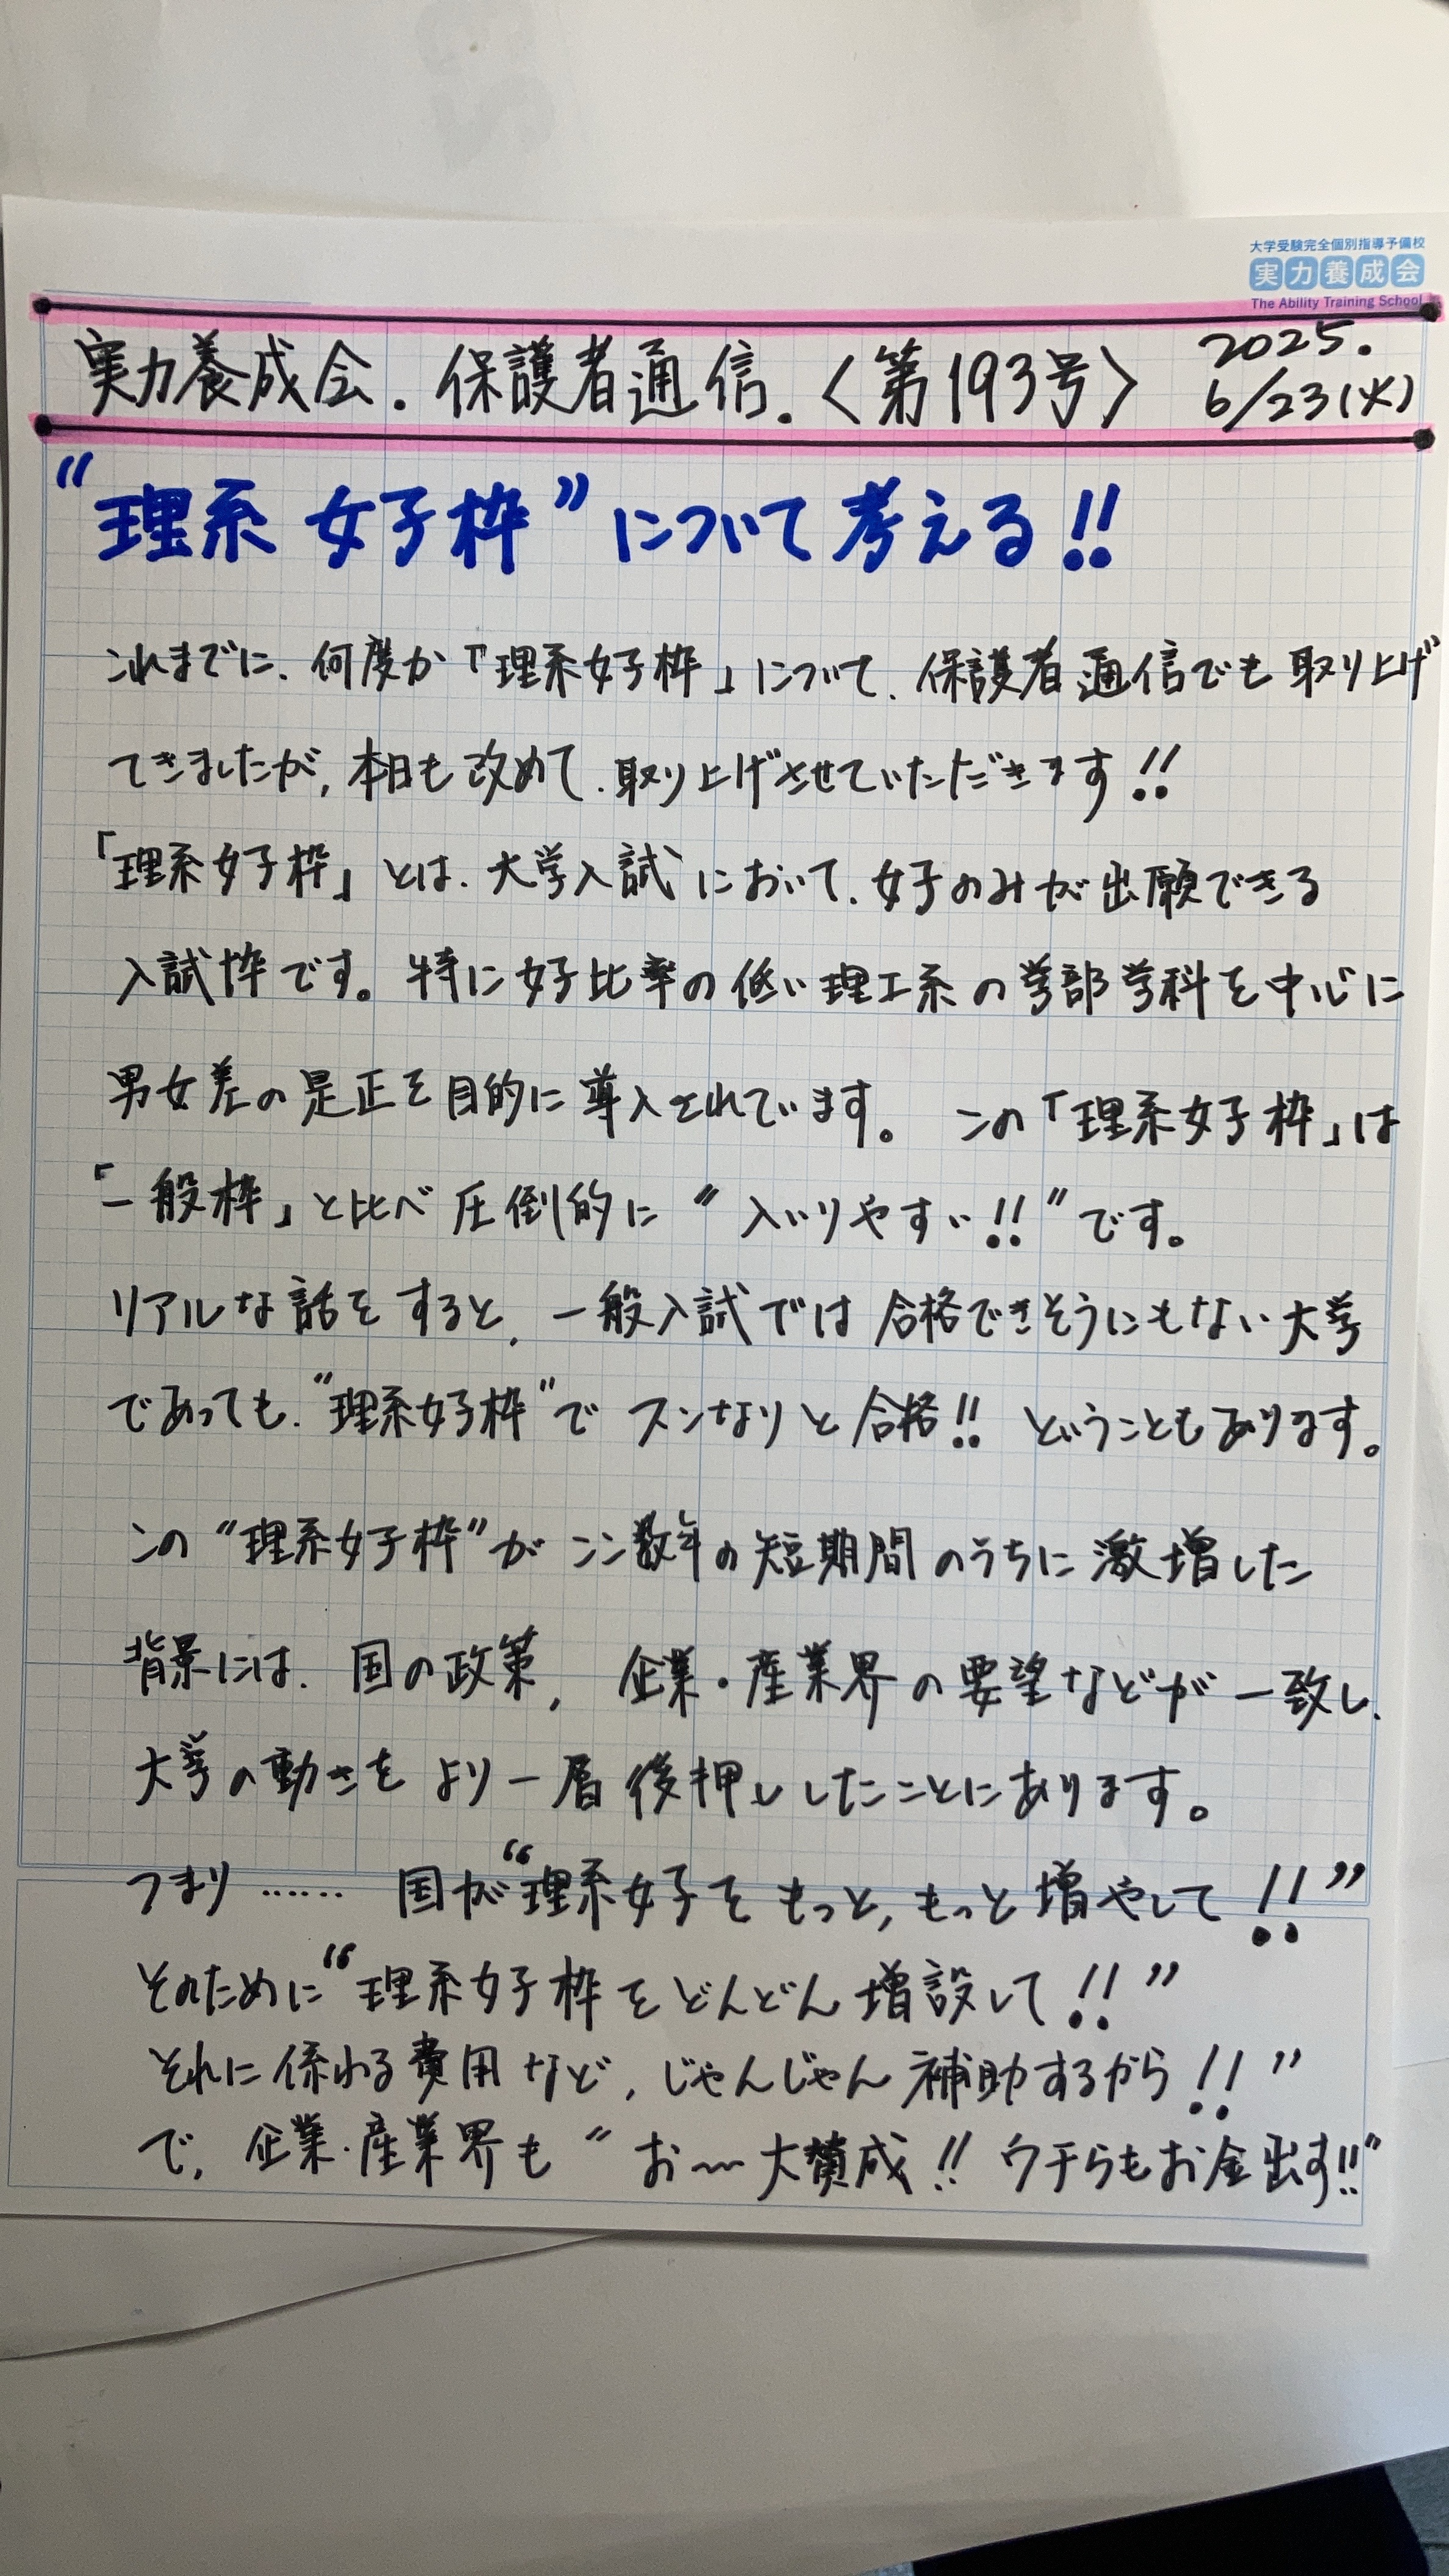 大学受験完全個別指導予備校
実力養成会
The Ability Training School
実力養成会.保護者通信.〈第193号〉
2025.
6/23(火)
“理系女子枠”について考える!!
これまでに、何度か「理系女子枠」について、保護者通信でも取り上げ
てきましたが、本日も改めて、取り上げさせていただきます!!
「理系女子枠」とは、大学入試において、女子のみが出願できる
入試枠です。特に女子比率の低い理工系の学部学科を中心に
男女差の是正を目的に導入されています。この「理系女子枠」は
「一般枠」と比べ圧倒的に“入いりやすい!!”です。
リアルな話をすると、一般入試では合格できそうにもない大学
であっても、“理系女子枠”でスンなりと合格!!ということもあります。
この“理系女子枠”がここ数年の短期間のうちに激増した
背景には、国の政策、企業・産業界の要望などが一致し、
大学の動きをより一層後押ししたことにあります。
つまり……国が“理系女子をもっと、もっと増やして!!”
そのために“理系女子枠をどんどん増設して!!”
それに係わる費用など、じゃんじゃん補助するから!!”
で、企業・産業界も“お〜大賛成!!ウチらもお金出す!!”